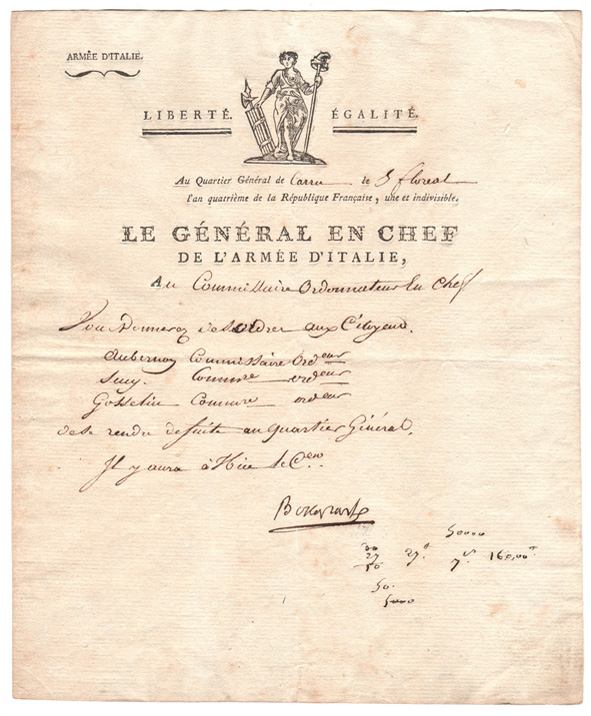 ARMÉE D'ITALIE.
LIBERTÉ. ÉGALITÉ.
Au Quartier Général de Carru le 5 floreal
l'an quatrième de la République Française, une et indivisible.
LE GÉNÉRAL EN CHEF
DE L'ARMÉE D'ITALIE,
Au Commissaire Ordonnateur En Chef
Vous Donnerez des ordres aux Citoyens.
Aubernon Commissaire Ordeur
Sucy. Commre ordeur
Gosselin Commre ordeur
de se rendre de suite au quartier Général.
Il y aura à Nice le
Bonaparte
50000
27 27 7 160,00
50
50.
5000